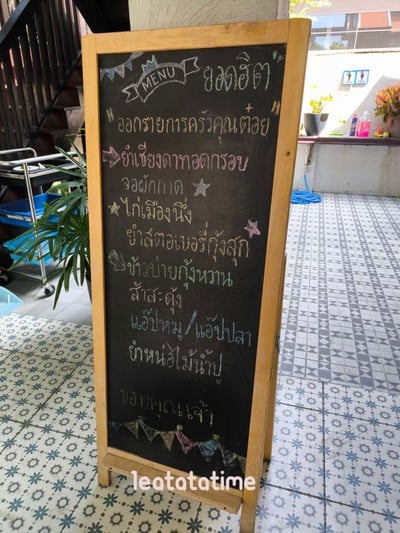 MENU ยอดฮิต
"ออกรายการครัวคุณต๋อย"
ยำเชียงดาทอดกรอบ
จอผักกาด
ไก่เมืองนึ่ง
ยำสตอเบอรี่กุ้งสุก
ข้าวบ่ายกุ้งหวาน
ส้าสะดุ้ง
แอ๊ปหมู/แอ๊ปปลา
ยำหน่อไม้น้ำปู
ขอบคุณเจ้า
leatatatime